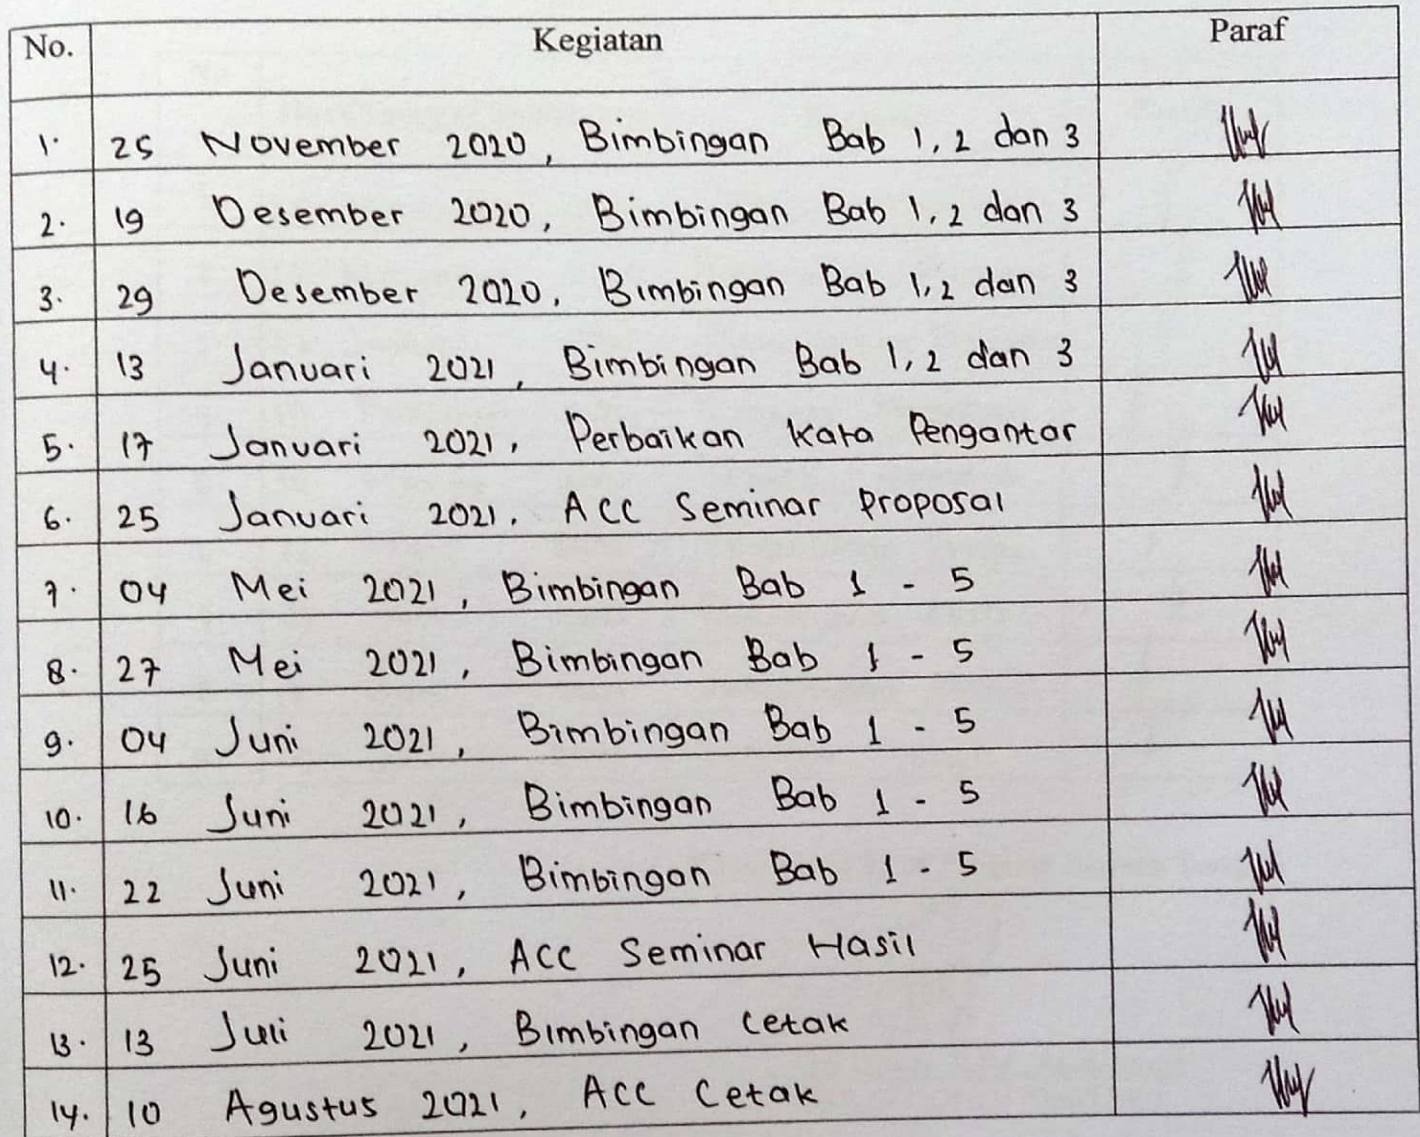 No. Kegiatan Paraf
1. 25 November 2020, Bimbingan Bab 1, 2 dan 3
2. 19 Desember 2020, Bimbingan Bab 1, 2 dan 3
3. 29 Desember 2020, Bimbingan Bab 1, 2 dan 3
4. 13 Januari 2021, Bimbingan Bab 1, 2 dan 3
5. 17 Januari 2021, Perbaikan Kata Pengantar
6. 25 Januari 2021, ACC Seminar Proposal
7. 04 Mei 2021, Bimbingan Bab 1 - 5
8. 27 Mei 2021, Bimbingan Bab 1 - 5
9. 04 Juni 2021, Bimbingan Bab 1 - 5
10. 16 Juni 2021, Bimbingan Bab 1 - 5
11. 22 Juni 2021, Bimbingan Bab 1 - 5
12. 25 Juni 2021, ACC Seminar Hasil
13. 13 Juli 2021, Bimbingan Cetak
14. 10 Agustus 2021, ACC Cetak